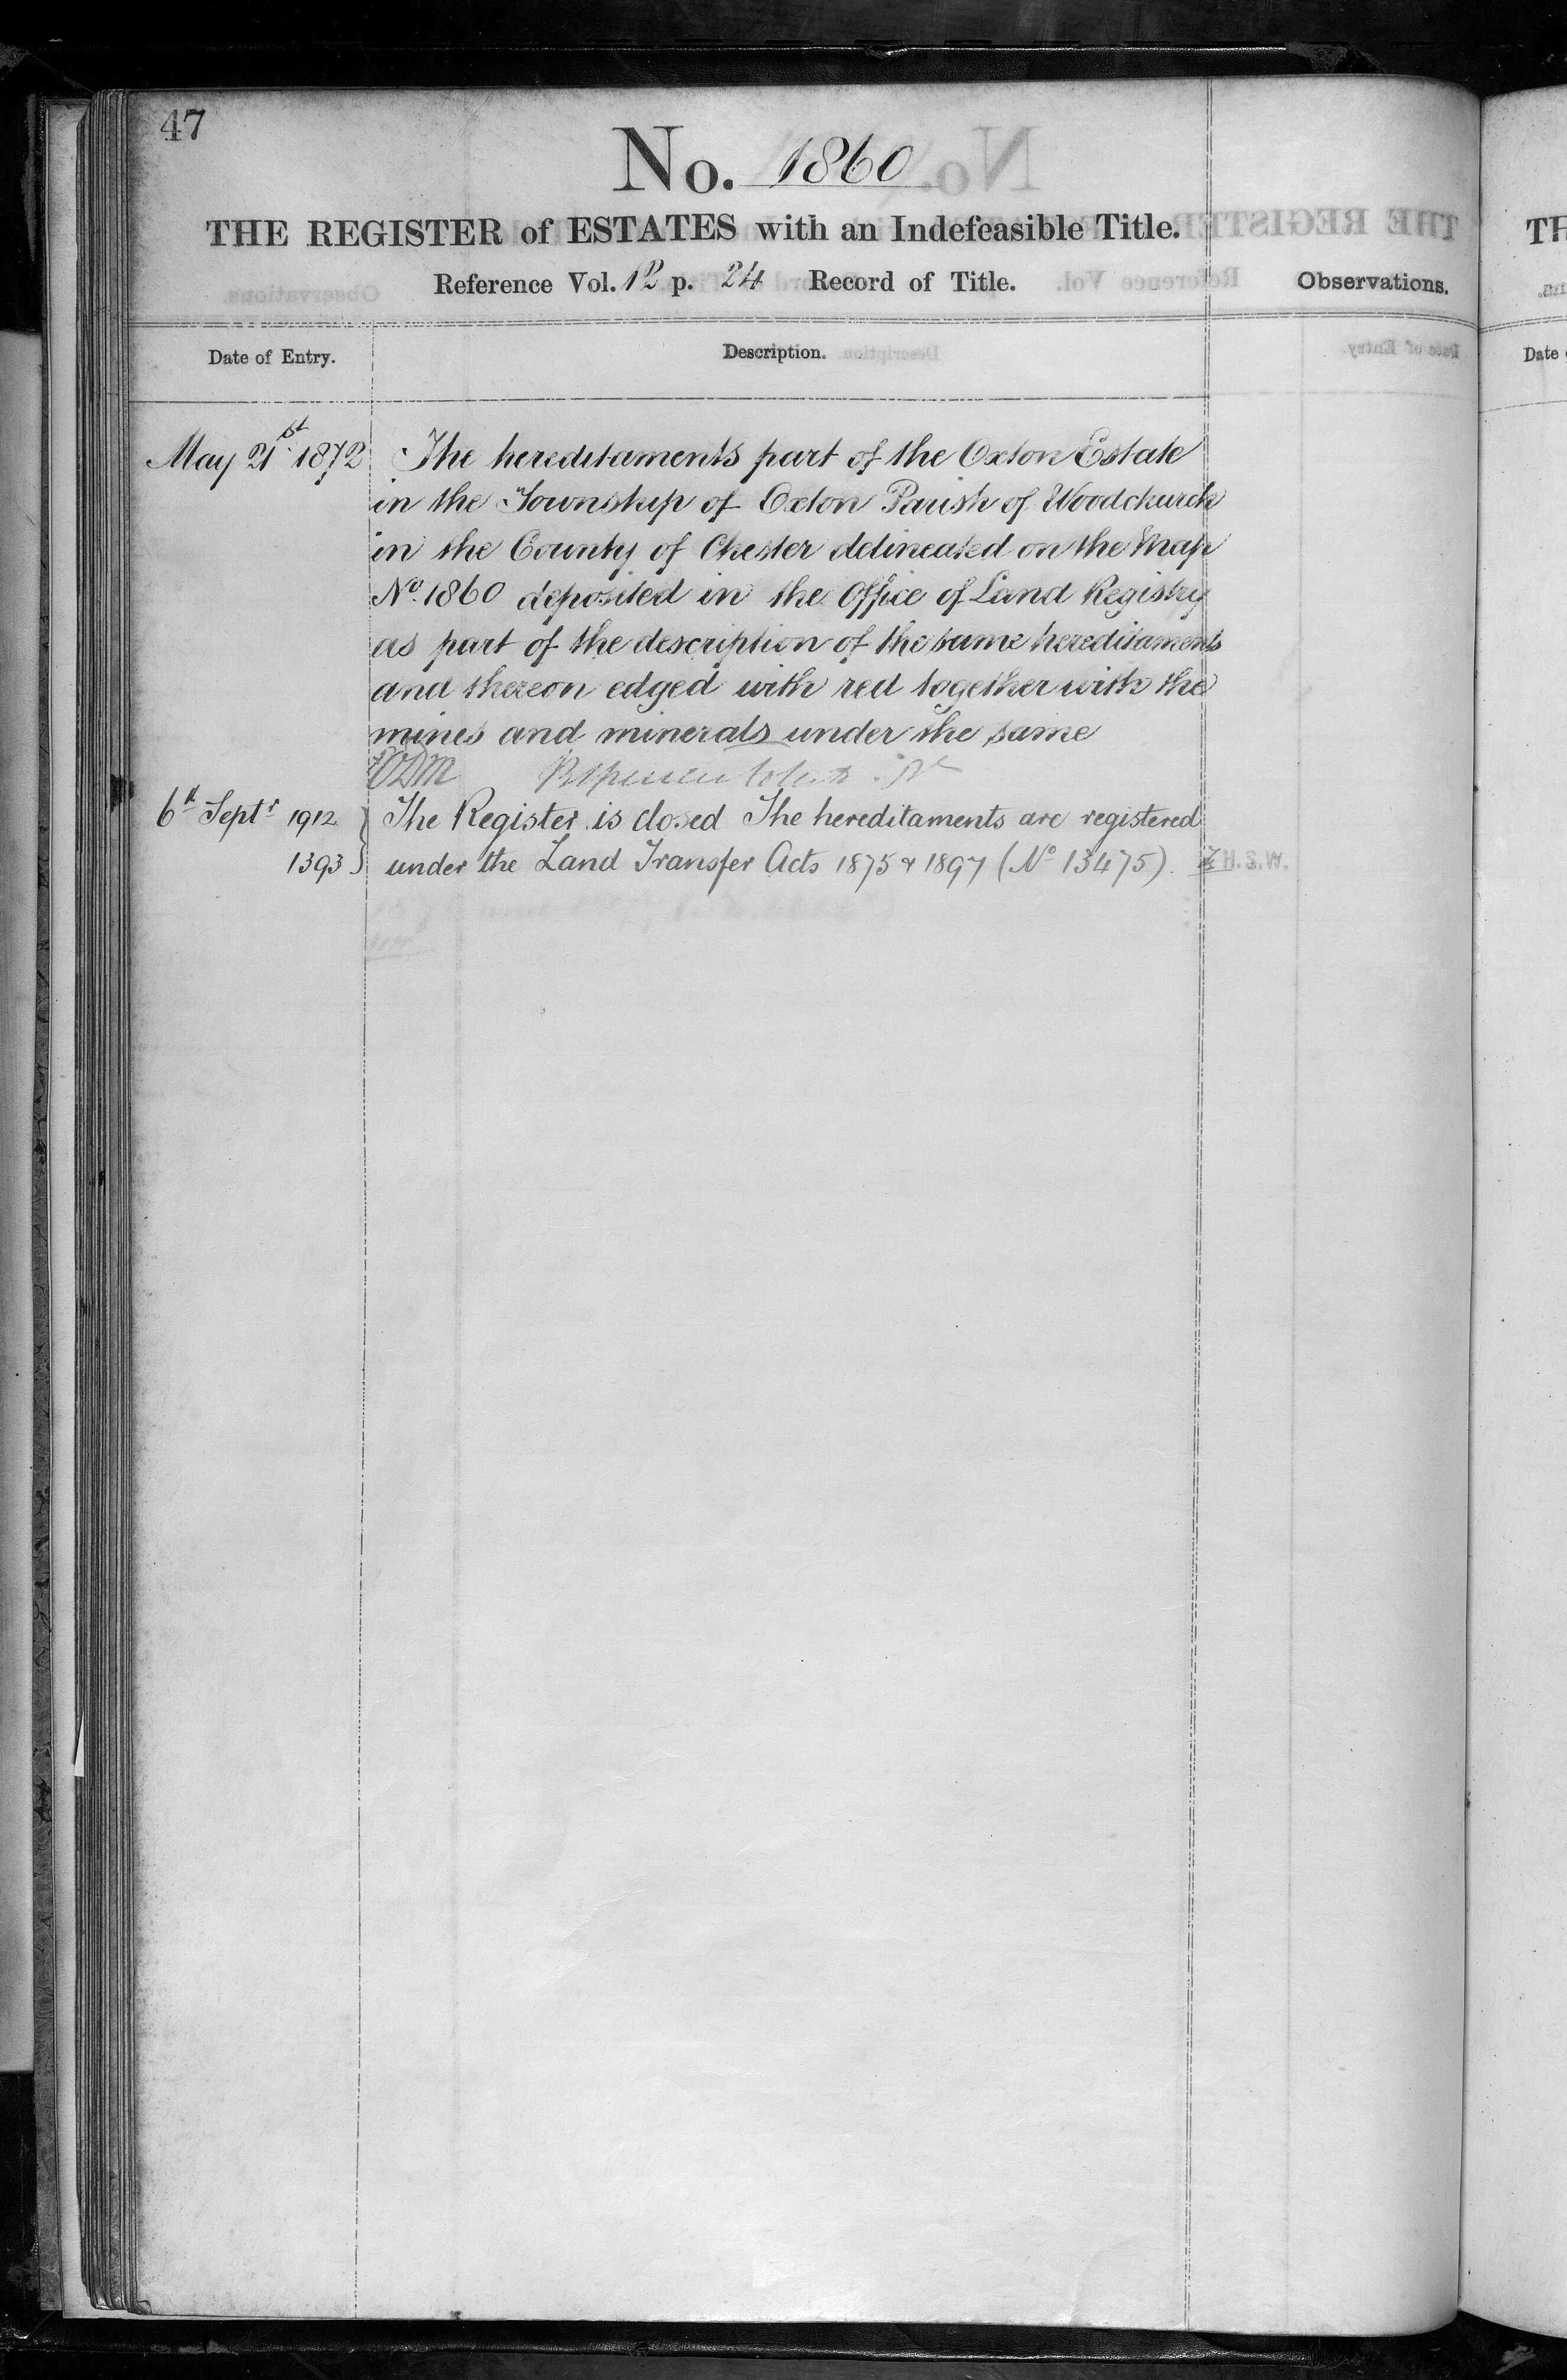 47
No. 1860
THE REGISTER of ESTATES with an Indefeasible Title.
Reference Vol. 12 p. 24 Record of Title.
Observations.
Date of Entry.
Description.
May 21st 1872
The hereditaments part of the Oxton Estate
in the Township of Oxton Parish of Woodchurch
in the County of Chester delineated on the Map
No. 1860 deposited in the Office of Land Registry
as part of the description of the same hereditaments
and thereon edged with red together with the
mines and minerals under the same
6th Septr 1912
1393
The Register is closed The hereditaments are registered
under the Land Transfer Acts 1875 & 1897 (No 13475).
TH
Date